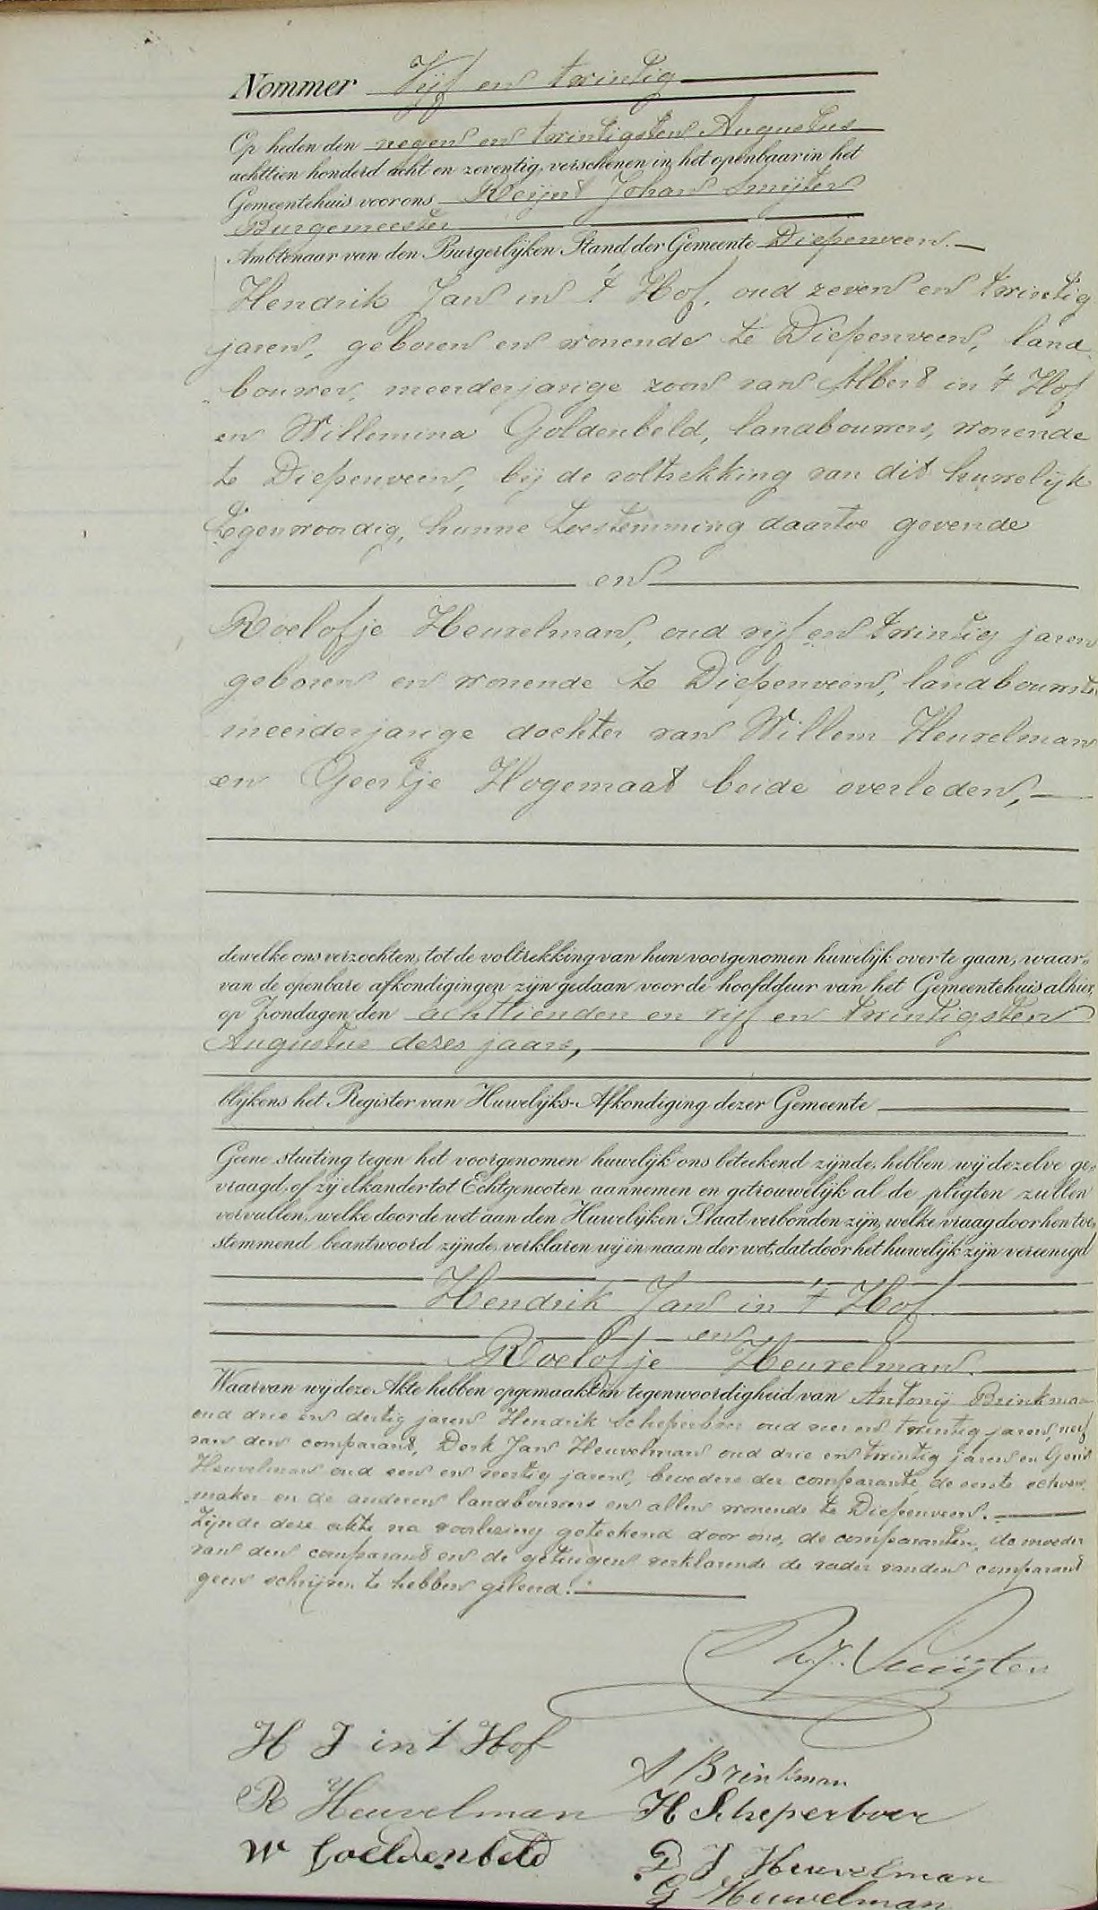 Nommer Vijf en twintig
Op heden den negen en twintigsten Augustus
achttien honderd acht en zeventig, verschenen in het openbaar in het
Gemeentehuis voor ons Reijnt Johan Smijter
Burgemeester
Ambtenaar van den Burgerlijken Stand der Gemeente Diepenveen.
Hendrik Jan in 't Hof, oud zeven en twintig
jaren, geboren en wonende te Diepenveen, land
bouwer, meerderjarige zoon van Albert in 't Hof
en Willemina Goldenbeld, landbouwers, wonende
te Diepenveen, bij de voltrekking van dit huwelijk
tegenwoordig, hunne toestemming daartoe gevende
en
Roelofje Heuvelman, oud vijf en twintig jaren
geboren en wonende te Diepenveen, landbouwster
meerderjarige dochter van Willem Heuvelman
en Geertje Hogemaat beide overleden,
dewelke ons verzochten, tot de voltrekking van hun voorgenomen huwelijk over te gaan, waar-
van de openbare afkondigingen zijn gedaan voor de hoofddeur van het Gemeentehuis alhier,
op Zondagen den achttienden en vijf en twintigsten
Augustus dezes jaars,
blijkens het Register van Huwelijks-Afkondiging dezer Gemeente
Geene stuiting tegen het voorgenomen huwelijk ons beteekend zijnde, hebben wij dezelve ge-
vraagd, of zij elkander tot Echtgenooten aannemen en getrouwelijk al de pligten zullen
vervullen, welke door de wet aan den Huwelijken Staat verbonden zijn, welke vraag door hen toe-
stemmend beantwoord zijnde, verklaren wij in naam der wet, dat door het huwelijk zijn vereenigd
Hendrik Jan in 't Hof
en
Roelofje Heuvelman.
Waarvan wij deze Akte hebben opgemaakt in tegenwoordigheid van Antonij Brinkman
oud drie en dertig jaren Hendrik Scheperboer oud vier en twintig jaren, neef
van den comparant, Derk Jan Heuvelman oud drie en twintig jaren en Gerrit
Heuvelman oud een en veertig jaren, broeders der comparante, de eerste
maker en de anderen landbouwers en allen wonende te Diepenveen.
Zijnde deze akte na voorlezing geteekend door ons, de comparanten, de moeder
van den comparant en de getuigen verklarende de vader van den comparant
geen schrijven te hebben geleerd.
R.J. Smijter
H J in 't Hof
A Brinkman
R Heuvelman
H Scheperboer
W Goeldenbeld
D J Heuvelman
G Heuvelman